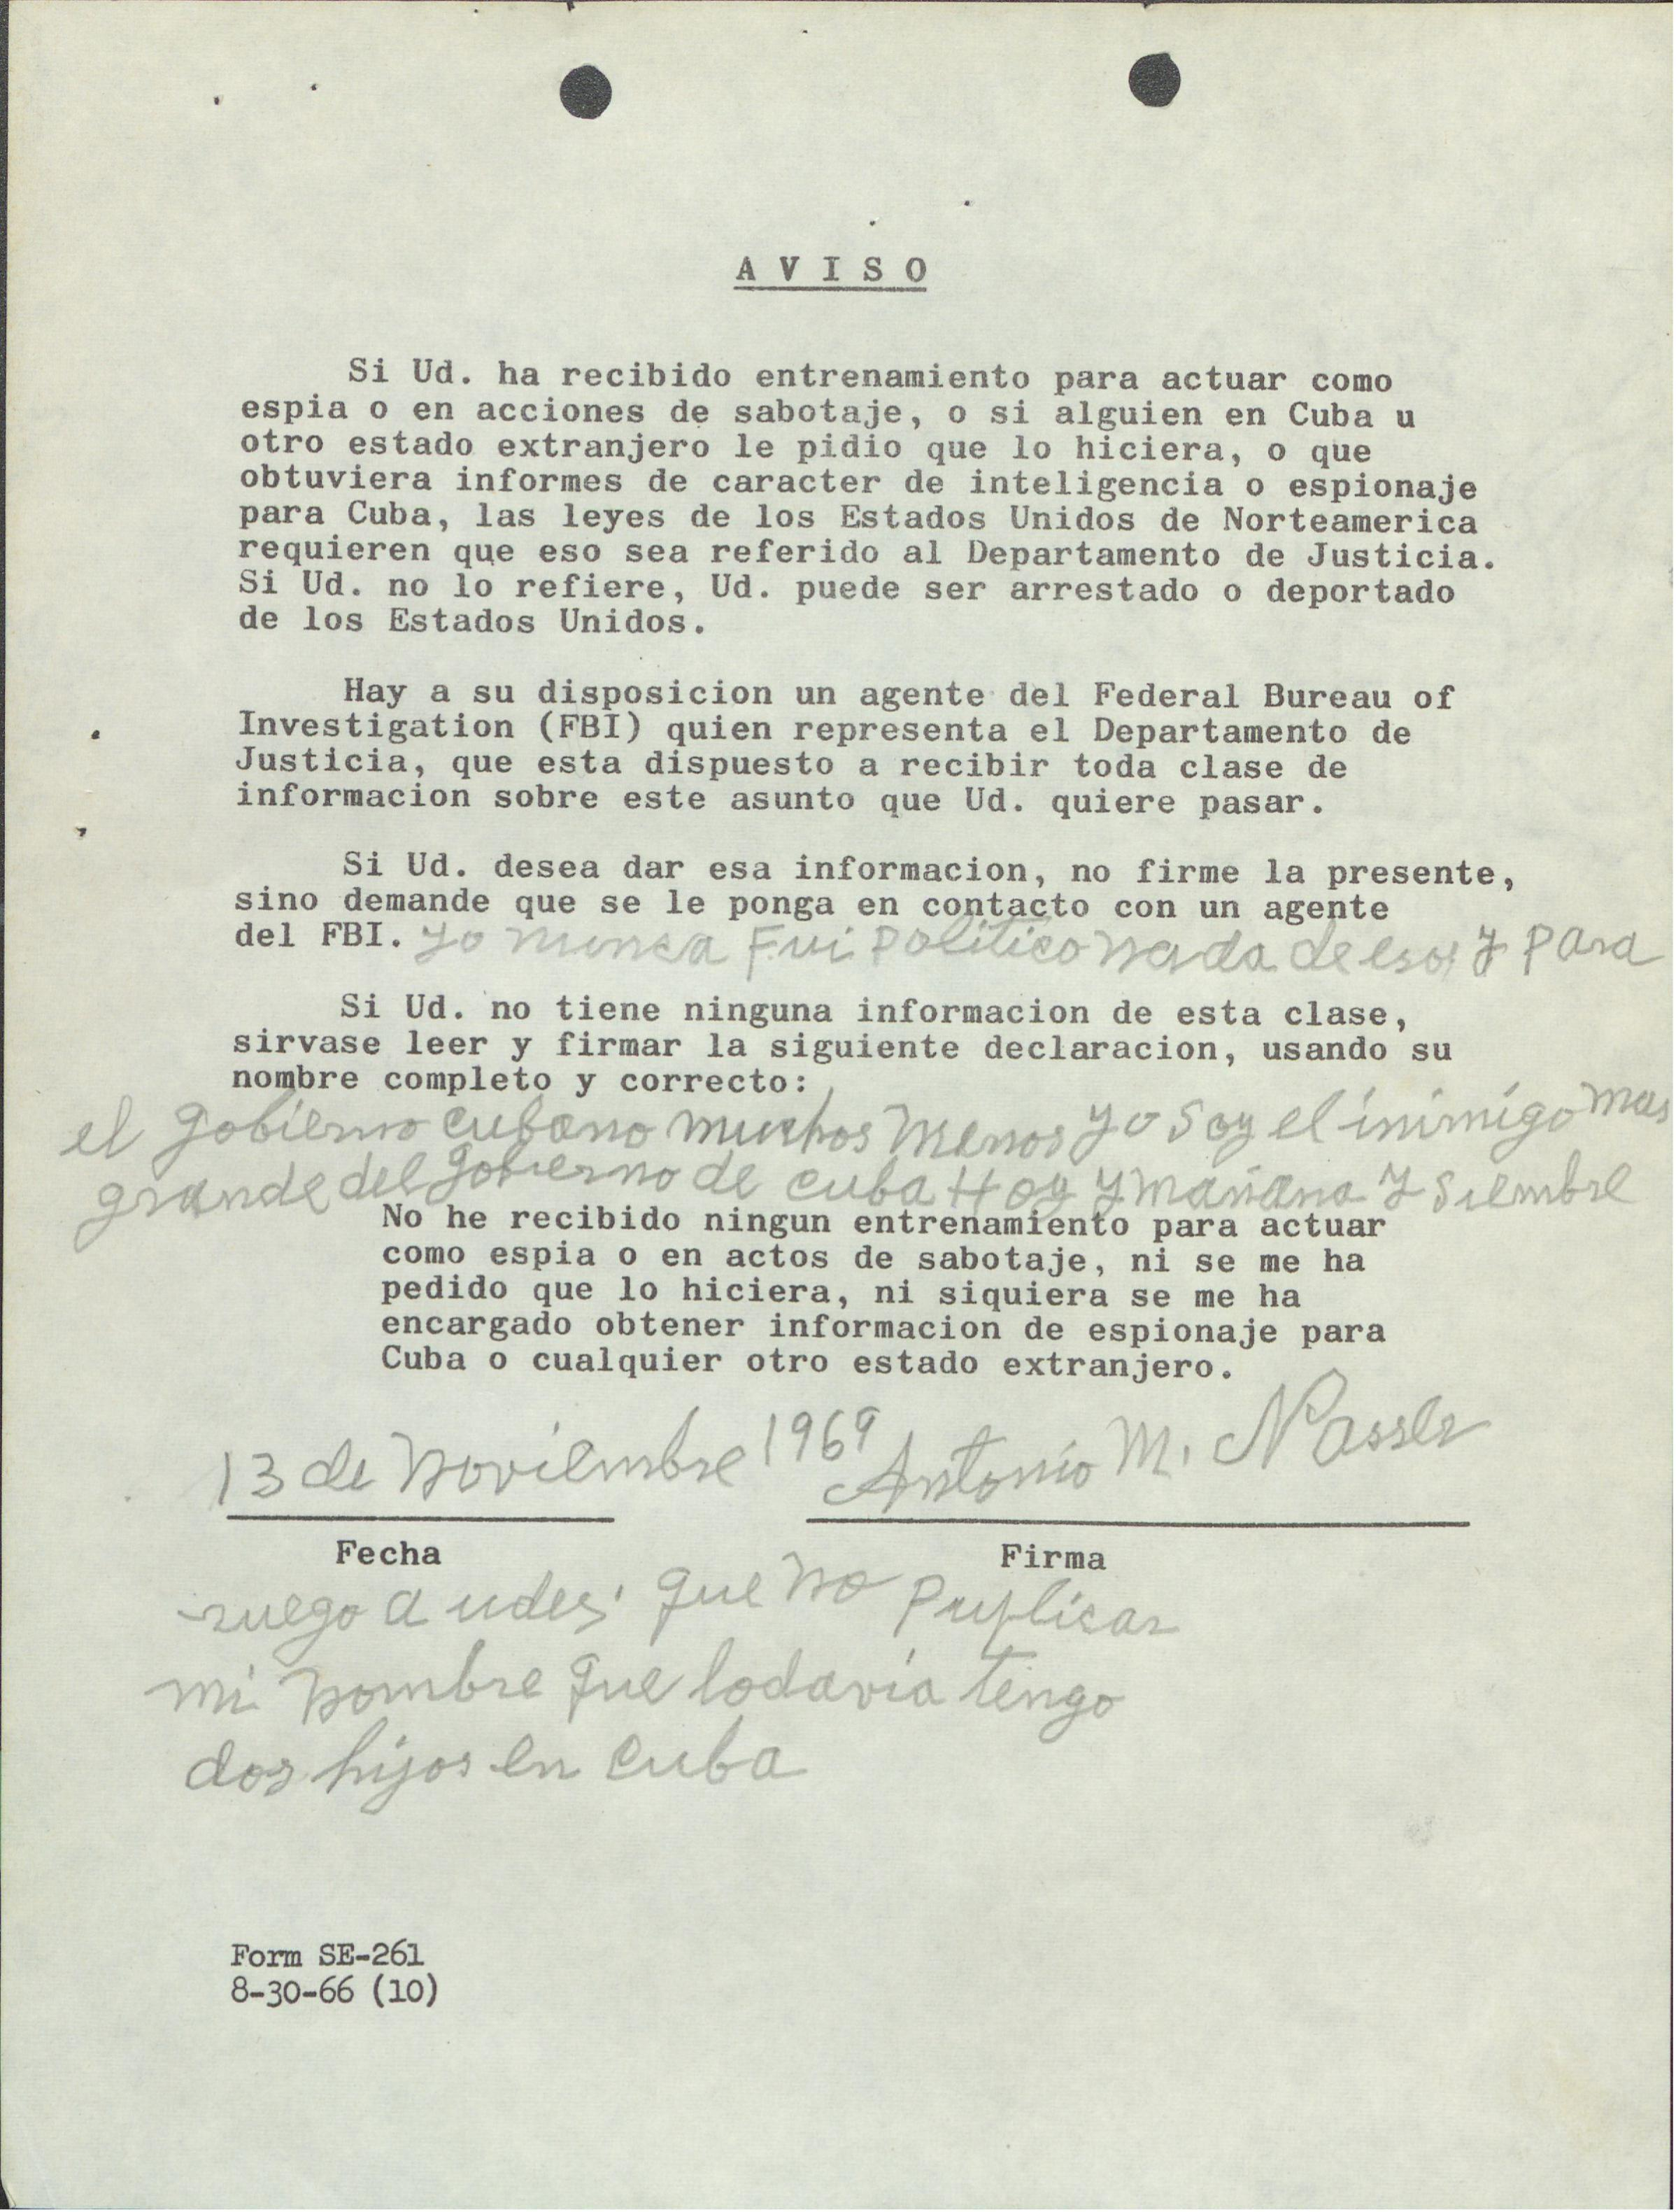 A V I S O
Si Ud. ha recibido entrenamiento para actuar como
espia o en acciones de sabotaje, o si alguien en Cuba u
otro estado extranjero le pidio que lo hiciera, o que
obtuviera informes de caracter de inteligencia o espionaje
para Cuba, las leyes de los Estados Unidos de Norteamerica
requieren que eso sea referido al Departamento de Justicia.
Si Ud. no lo refiere, Ud. puede ser arrestado o deportado
de los Estados Unidos.
Hay a su disposicion un agente del Federal Bureau of
Investigation (FBI) quien representa el Departamento de
Justicia, que esta dispuesto a recibir toda clase de
informacion sobre este asunto que Ud. quiere pasar.
Si Ud. desea dar esa informacion, no firme la presente,
sino demande que se le ponga en contacto con un agente
del FBI. yo nunca Fui politico nada de eso y para
Si Ud. no tiene ninguna informacion de esta clase,
sirvase leer y firmar la siguiente declaracion, usando su
nombre completo y correcto:
el gobierno cubano muchos menos yo soy el inimigo mas
grande del gobierno de cuba Hoy y mañana y siembre
No he recibido ningun entrenamiento para actuar
como espia o en actos de sabotaje, ni se me ha
pedido que lo hiciera, ni siquiera se me ha
encargado obtener informacion de espionaje para
Cuba o cualquier otro estado extranjero.
13 de noviembre 1969 Antonio M. Nasser
Fecha Firma
ruego a udes. que no puplicar
mi nombre que todavia tengo
dos hijos en cuba
Form SE-261
8-30-66 (10)